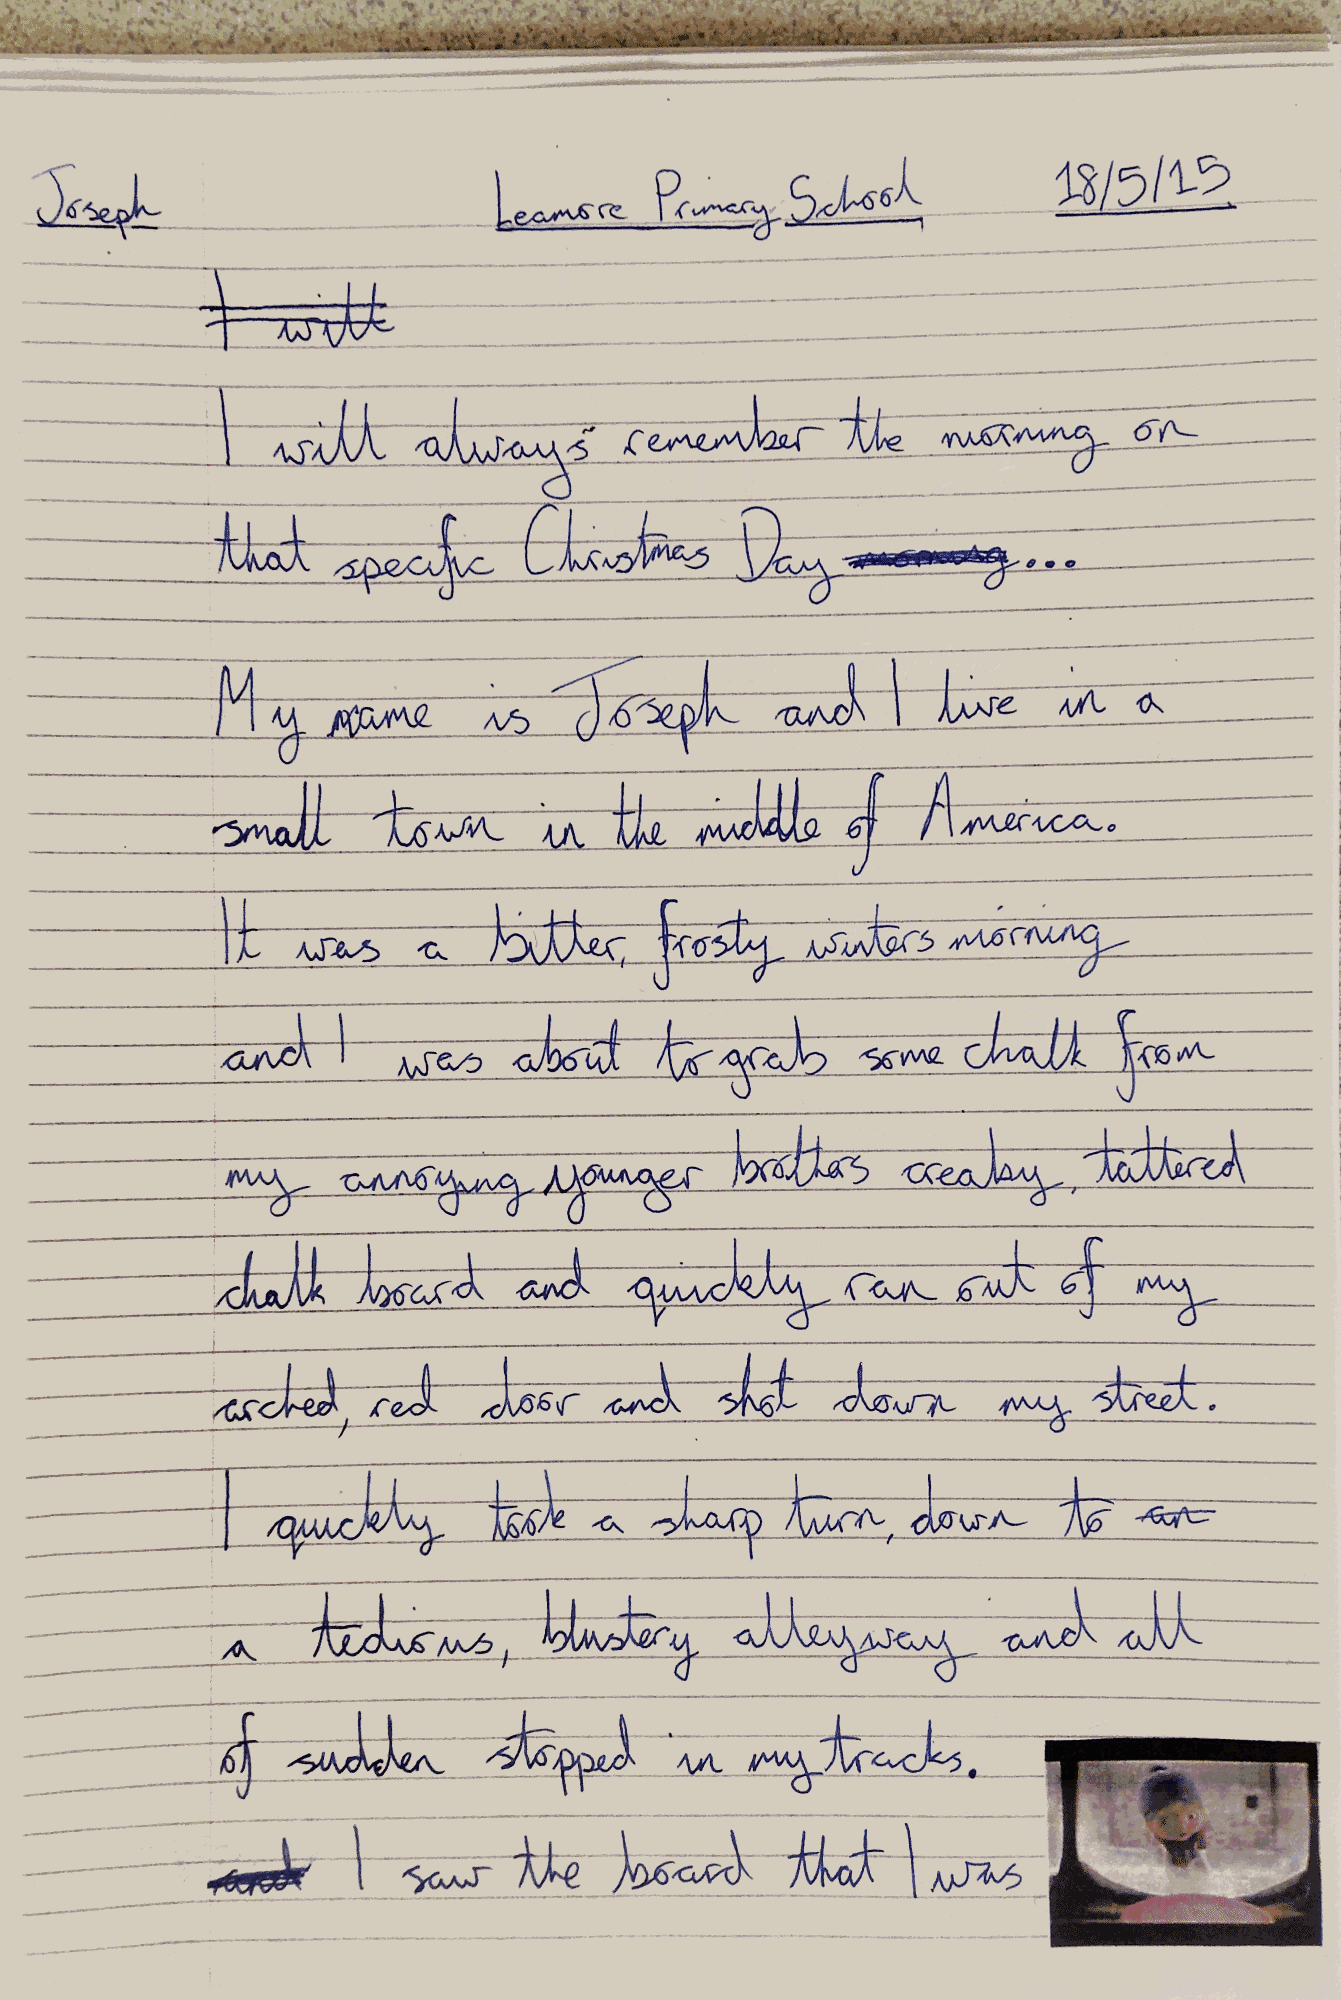 Joseph Leamore Primary School 18/5/15
I will
I will always remember the morning on
that specific Christmas Day morning...
My name is Joseph and I live in a
small town in the middle of America.
It was a bitter, frosty winters morning
and I was about to grab some chalk from
my annoying younger brothers creaky, tattered
chalk board and quickly ran out of my
arched, red door and shot down my street.
I quickly took a sharp turn, down to an
a tedious, blustery alleyway and all
of sudden stopped in my tracks.
and I saw the board that I was